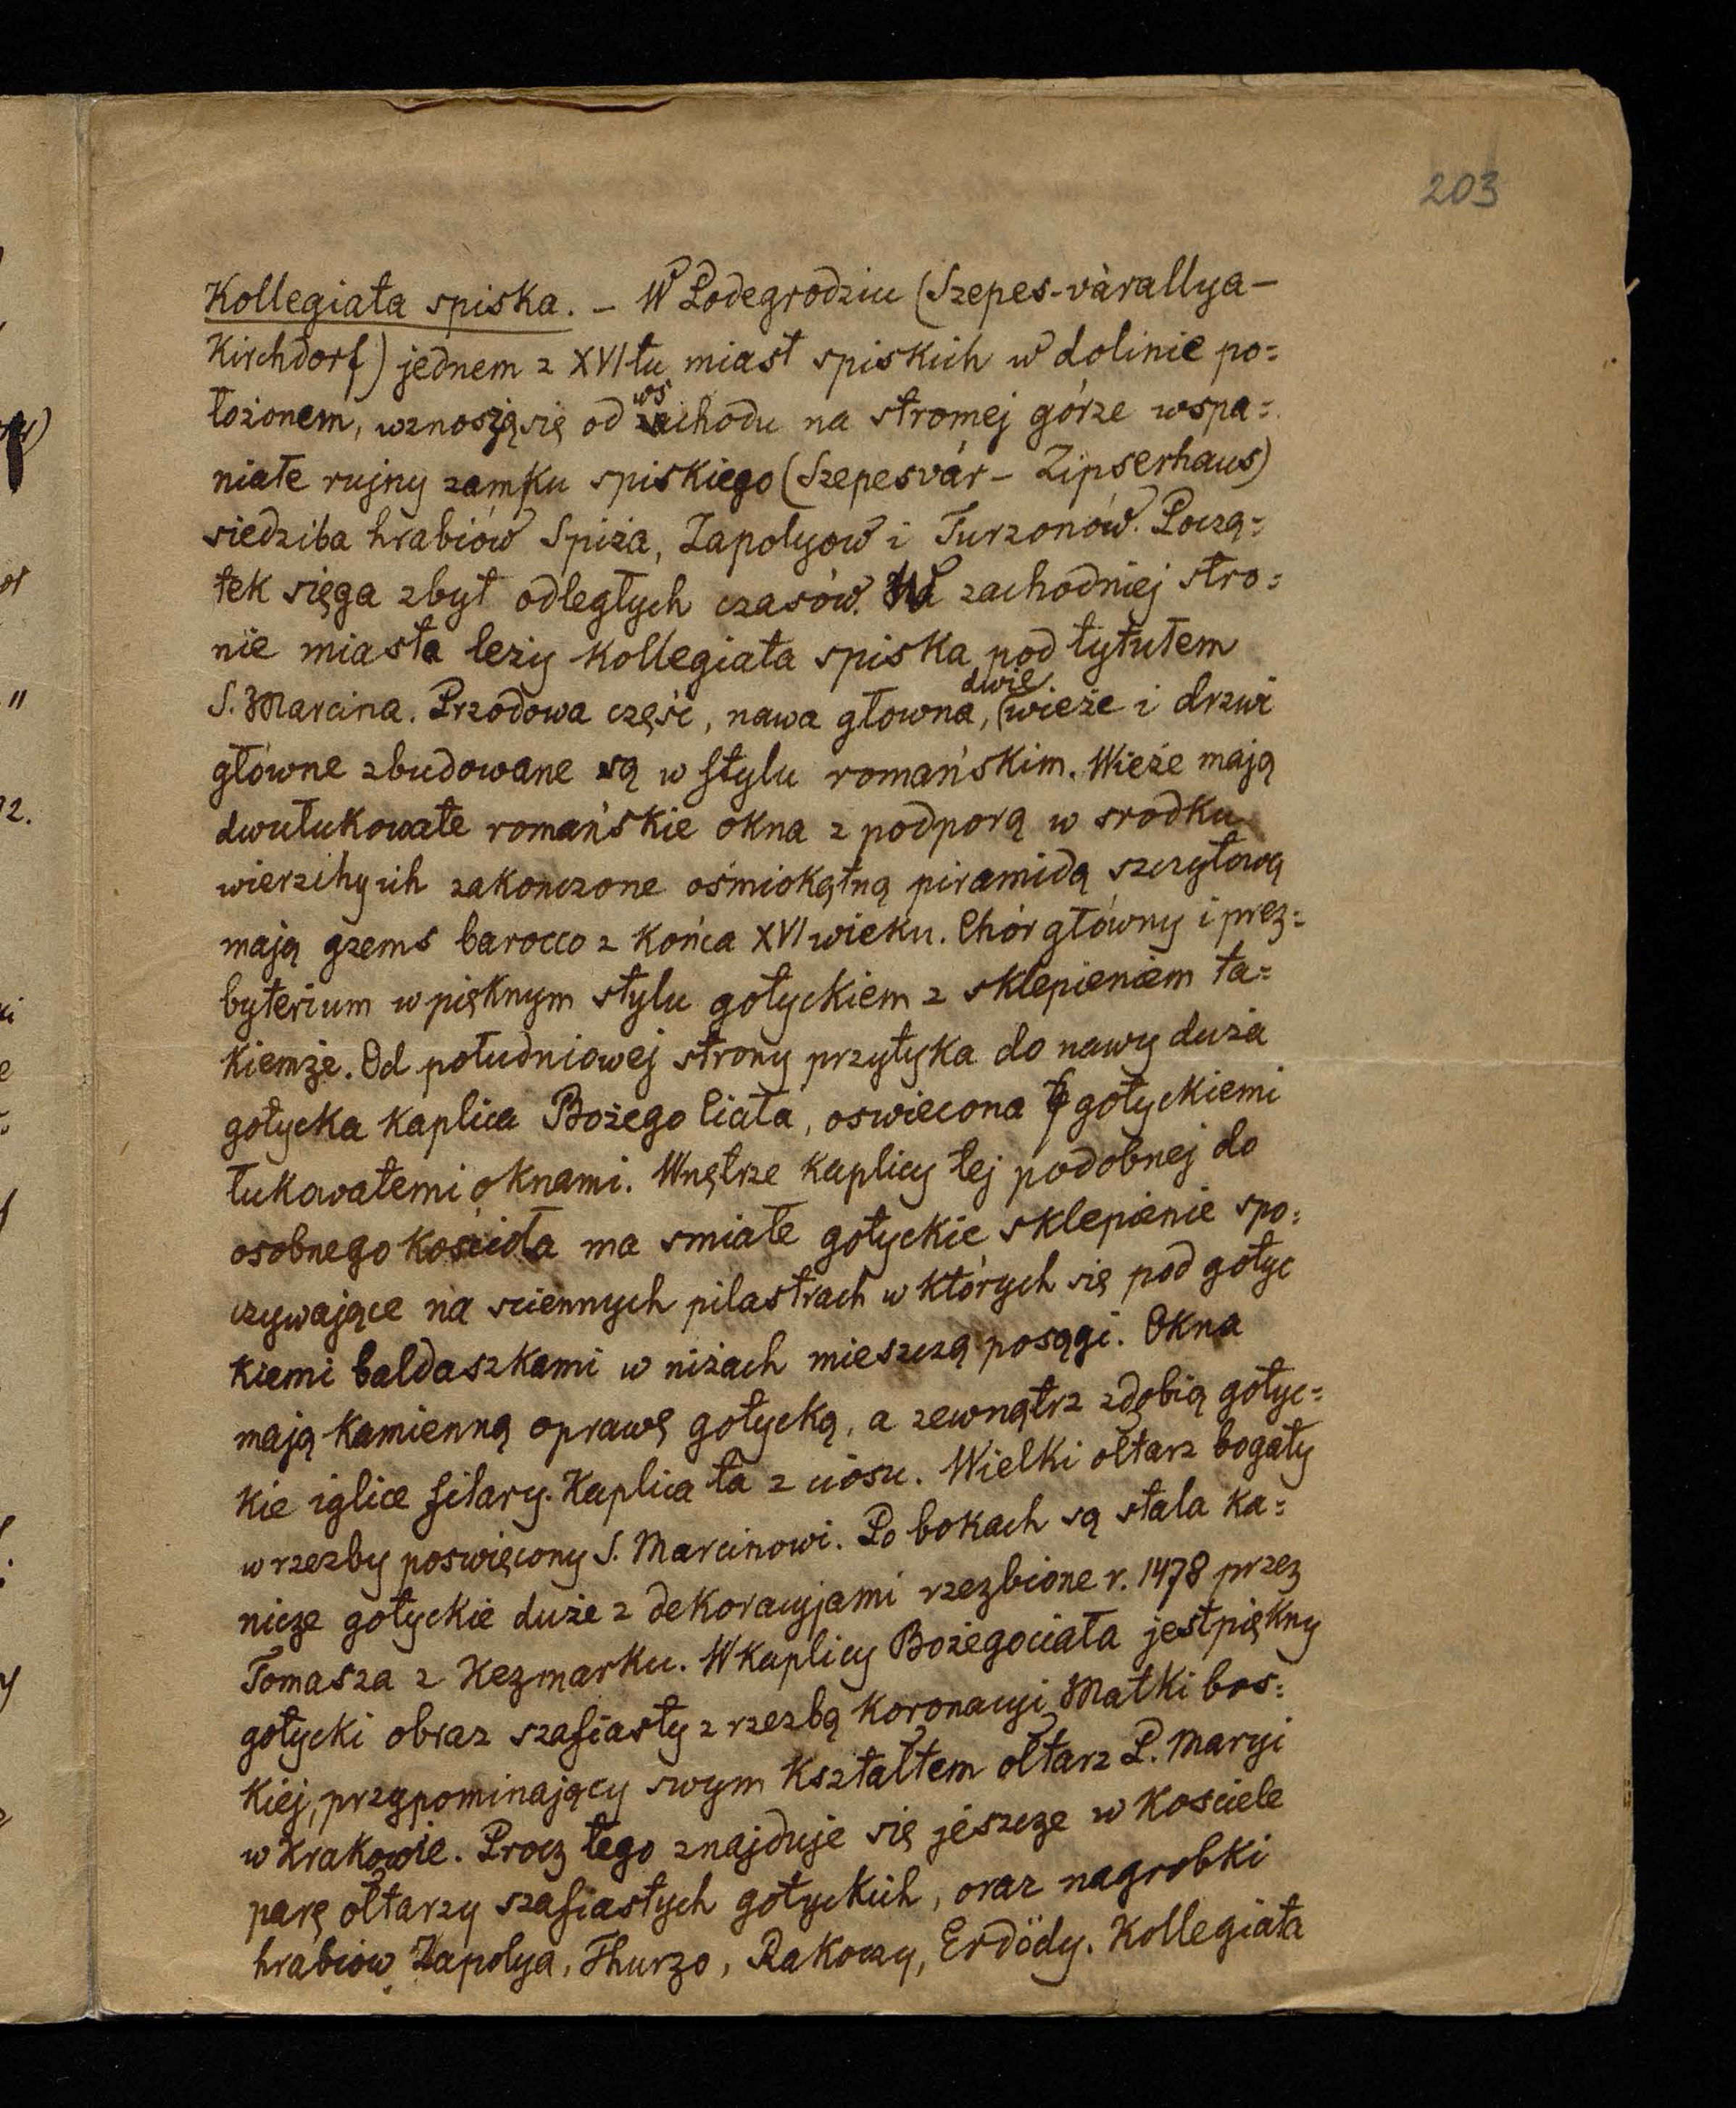 203
Kollegiata spiska. – W Podegrodziu (Szepes-várallya –
Kirchdorf) jednem z XVItu miast spiskich w dolinie po=
łożonem, wznoszą się od wschodu na stromej górze wspa=
niałe rujny zamku spiskiego (Szepesvár – Zipserhaus)
siedziba hrabiów Spiża, Zapolyow i Turzonów. Począ=
tek sięga zbyt odległych czasów. W zachodniej stro=
nie miasta leży kollegiata spiska pod tytułem
S. Marcina. Przodowa część, nawa głowna, dwie wieże i drzwi
główne zbudowane są w stylu romańskim. Wieże mają
dwułukowate romańskie okna z podporą w srodku
wierzchy ich zakonczone ośmiokątną piramidą szczytową
mają gzems barocco z końca XVI wieku. Chór główny i prez=
byterium w pięknym stylu gotyckiem z sklepieniem ta=
kiemże. Od południowej strony przytyka do nawy duża
gotycka kaplica Bożego Ciała, oswiecona gotyckiemi
łukowatemi oknami. Wnętrze kaplicy tej podobnej do
osobnego kościoła ma smiałe gotyckie sklepienie spo=
czywające na sciennych pilastrach w których się pod gotyc
kiemi baldaszkami w niżach mieszczą posągi. Okna
mają kamienną oprawę gotycką, a zewnątrz zdobią gotyc=
kie iglice filary. Kaplica ta z ciosu. Wielki ołtarz bogaty
w rzezby poswięcony S. Marcinowi. Po bokach są stala ka=
nicze gotyckie duże z dekoracyjami rzezbione r. 1478 przez
Tomasza z Kezmarku. W kaplicy Bożegociała jest piękny
gotycki obraz szafiasty z rzezbą koronacyi Matki bos=
kiej, przypominający swym kształtem ołtarz P. Maryi
w Krakowie. Procz tego znajduje się jeszcze w kosciele
parę ołtarzy szafiastych gotyckich, oraz nagrobki
hrabiow Zapolya, Thurzo, Rakoczy, Erdödy. Kollegiata